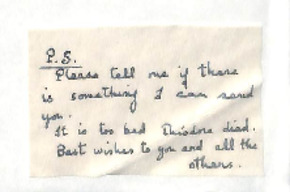 P.S.
Please tell me if there
is something I can send
you.
It is too bad Theodore died.
Best wishes to you and all the
others.